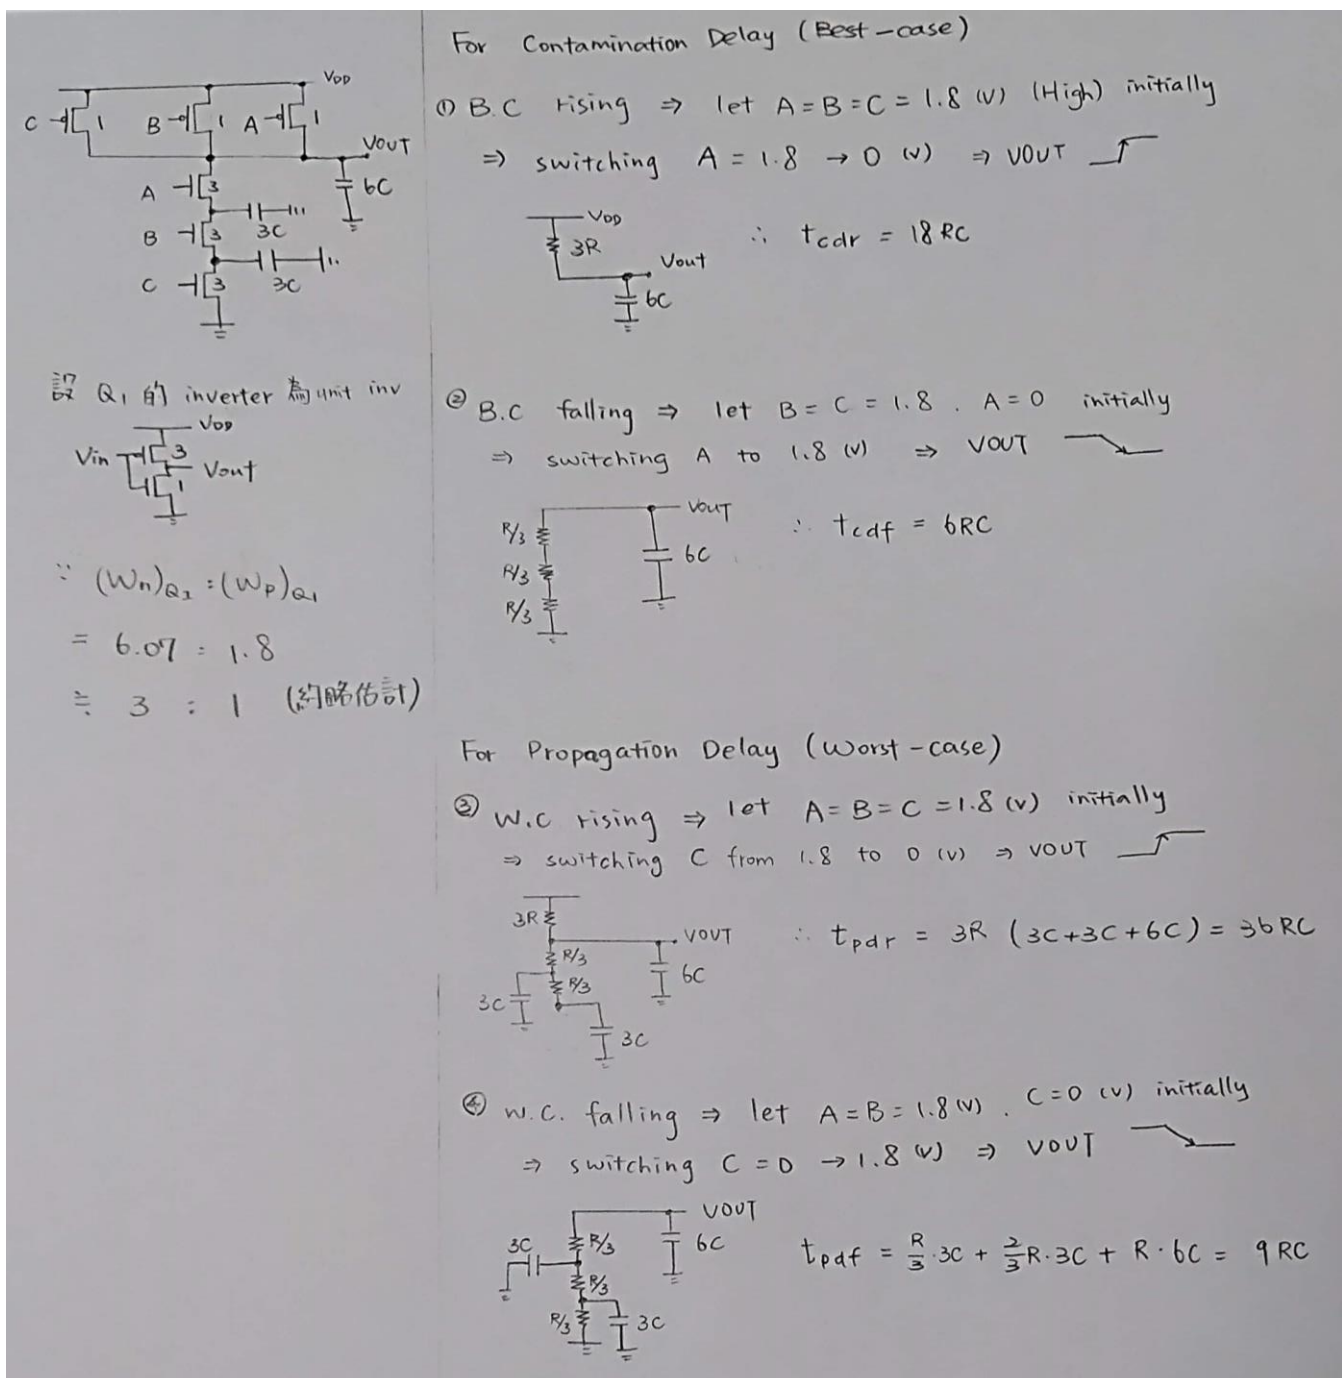 VDD
C 1 B 1 A 1
VOUT
A 3
6C
3C
B 3
C 3
3C
設 Q1 的 inverter 為 unit inv
VDD
Vin 3
Vout
1
∵ (Wn)Q2 : (Wp)Q1
= 6.07 : 1.8
≒ 3 : 1 (約略估計)
For Contamination Delay (Best-case)
① B.C rising ⇒ let A = B = C = 1.8 (V) (High) initially
⇒ switching A = 1.8 → 0 (V) ⇒ VOUT
VDD
3R
Vout
6C
∴ tcdr = 18 RC
② B.C falling ⇒ let B = C = 1.8 . A = 0 initially
⇒ switching A to 1.8 (V) ⇒ VOUT
VOUT
R/3
R/3
R/3
6C
∴ tcdf = 6RC
For Propagation Delay (Worst-case)
③ W.C rising ⇒ let A = B = C = 1.8 (V) initially
⇒ switching C from 1.8 to 0 (V) ⇒ VOUT
3R
VOUT
R/3
R/3
6C
3C
3C
∴ tpdr = 3R (3C+3C+6C) = 36 RC
④ W.C. falling ⇒ let A = B = 1.8 (V) . C = 0 (V) initially
⇒ switching C = 0 → 1.8 (V) ⇒ VOUT
VOUT
3C
R/3
6C
R/3
R/3
3C
tpdf = R/3 · 3C + 2/3 R · 3C + R · 6C = 9 RC